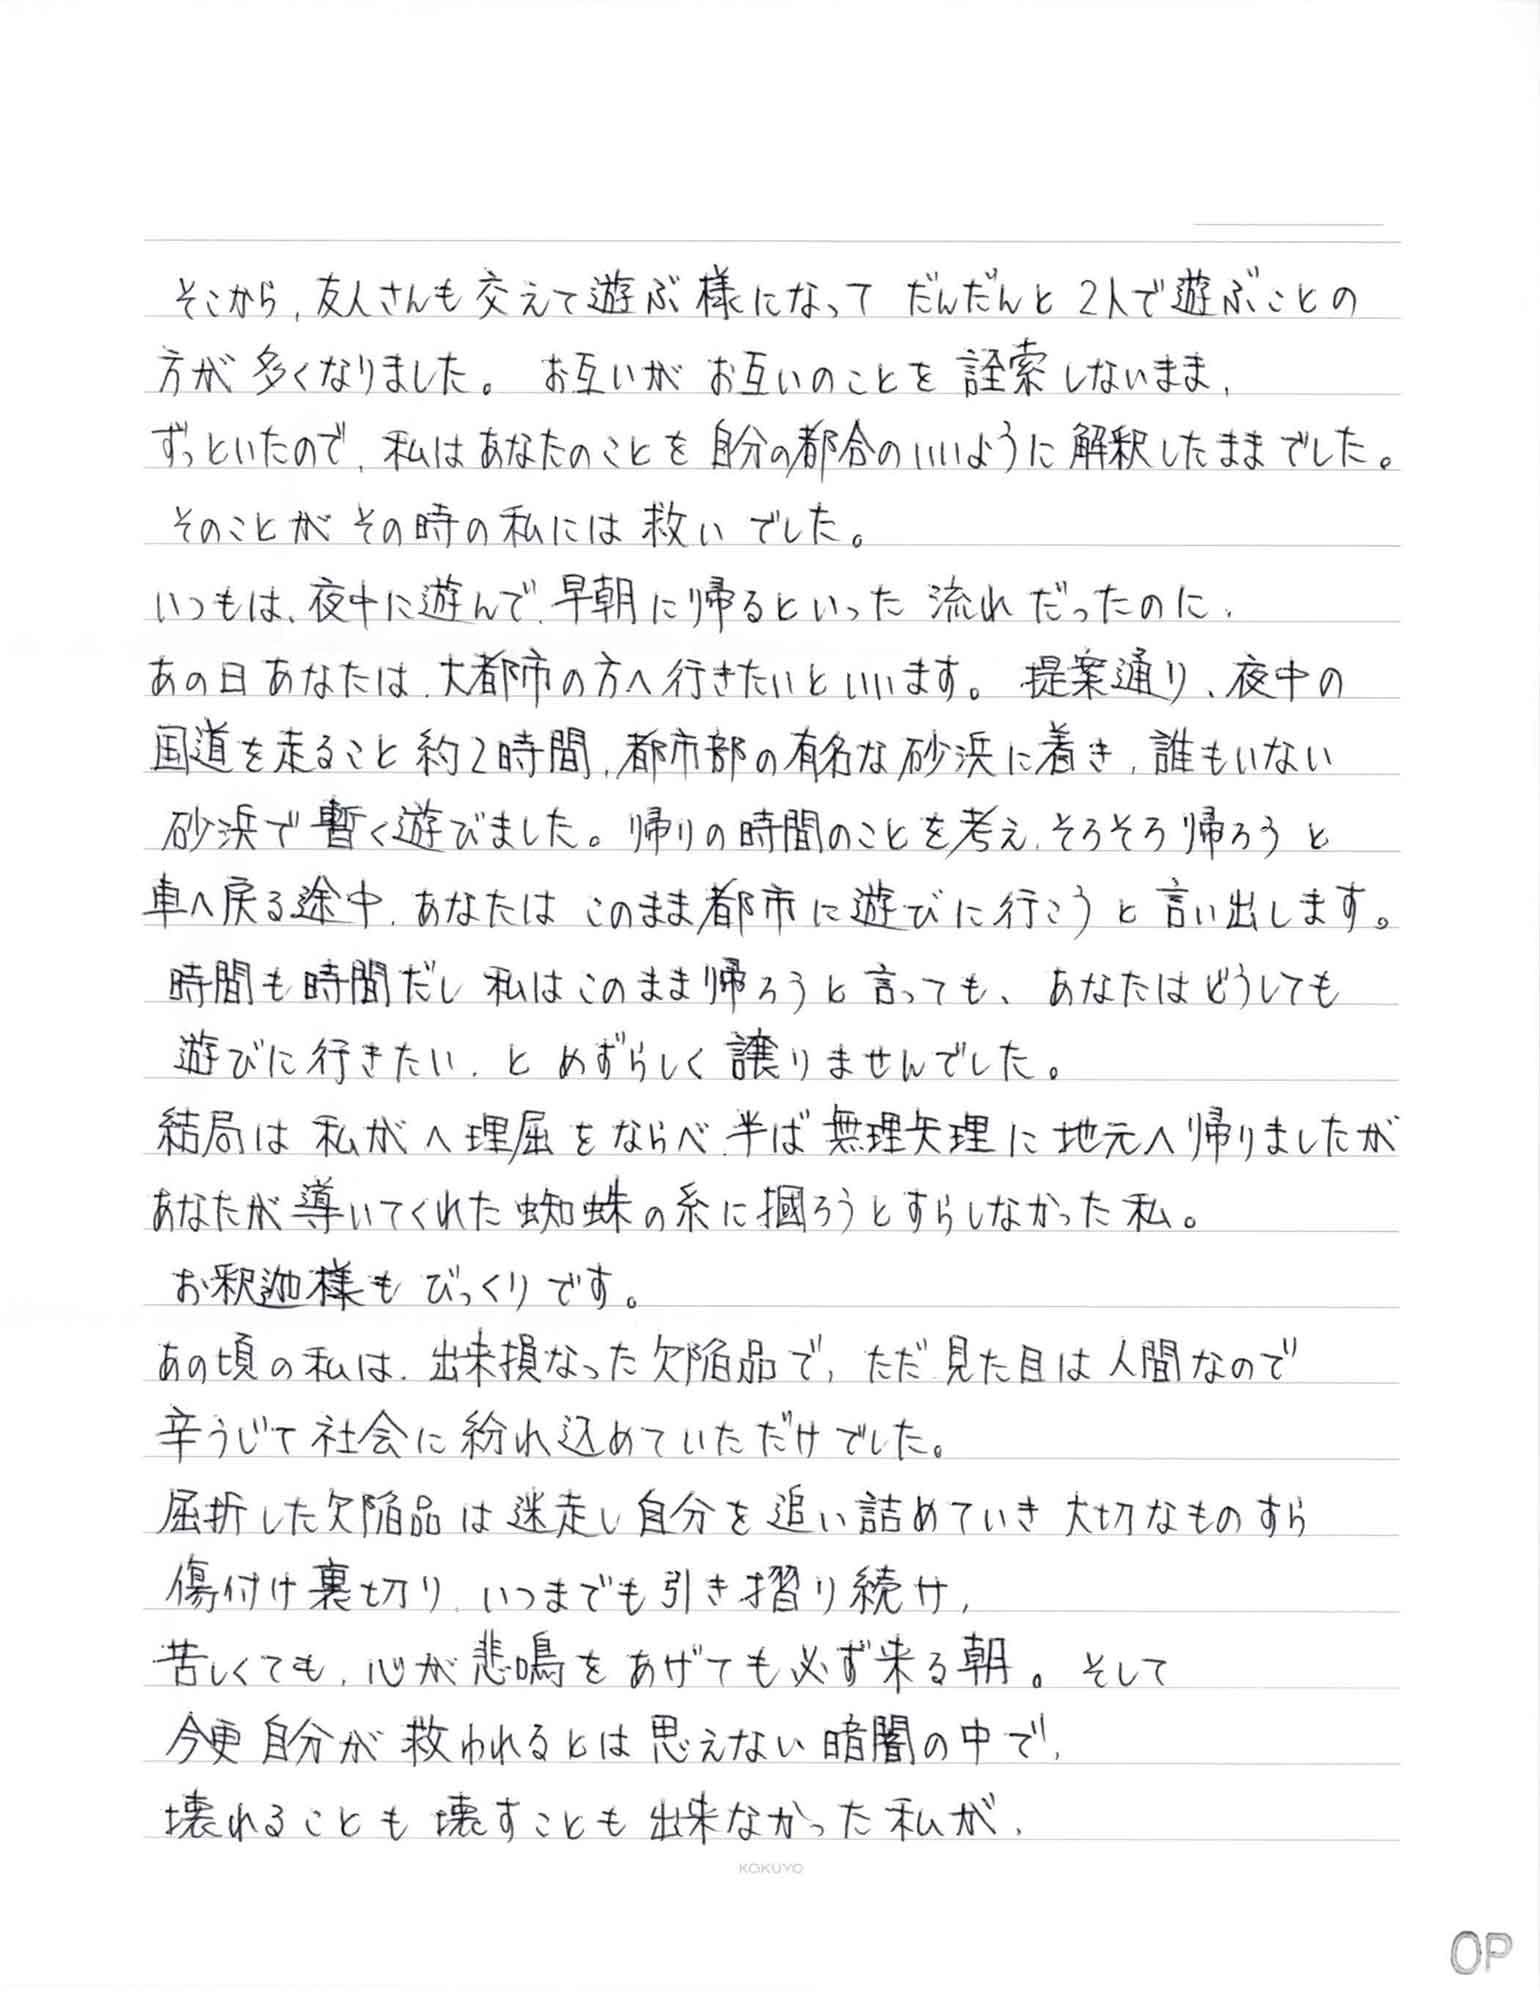 そこから、友人さんも交えて遊ぶ様になって だんだんと 2人で遊ぶことの
方が多くなりました。 お互いが お互いのことを 詮索しないまま、
ずっといたので、私はあなたのことを自分の都合のいいように解釈したままでした。
そのことが その時の私には救いでした。
いつもは、夜中に遊んで、早朝に帰るといった 流れだったのに、
あの日あなたは、大都市の方へ行きたいといいます。 提案通り、夜中の
国道を走ること約2時間、都市部の有名な砂浜に着き、誰もいない
砂浜で暫く遊びました。帰りの時間のことを考え、そろそろ帰ろうと
車へ戻る途中、あなたは このまま都市に遊びに行こうと言い出します。
時間も時間だし 私はこのまま帰ろうと言っても、あなたはどうしても
遊びに行きたい、とめずらしく譲りませんでした。
結局は 私がへ理屈をならべ、半ば無理矢理に地元へ帰りましたが
あなたが導いてくれた蜘蛛の糸に掴ろうとすらしなかった私。
お釈迦様もびっくりです。
あの頃の私は、出来損なった欠陥品で、ただ見た目は人間なので
辛うじて社会に紛れ込めていただけでした。
屈折した欠陥品は迷走し自分を追い詰めていき 大切なものすら
傷付け裏切り、いつまでも引き摺り続け、
苦しくても、心が悲鳴をあげても必ず来る朝。そして
今更自分が救われるとは思えない暗闇の中で、
壊れることも 壊すことも 出来なかった私が、
KOKUYO
OP